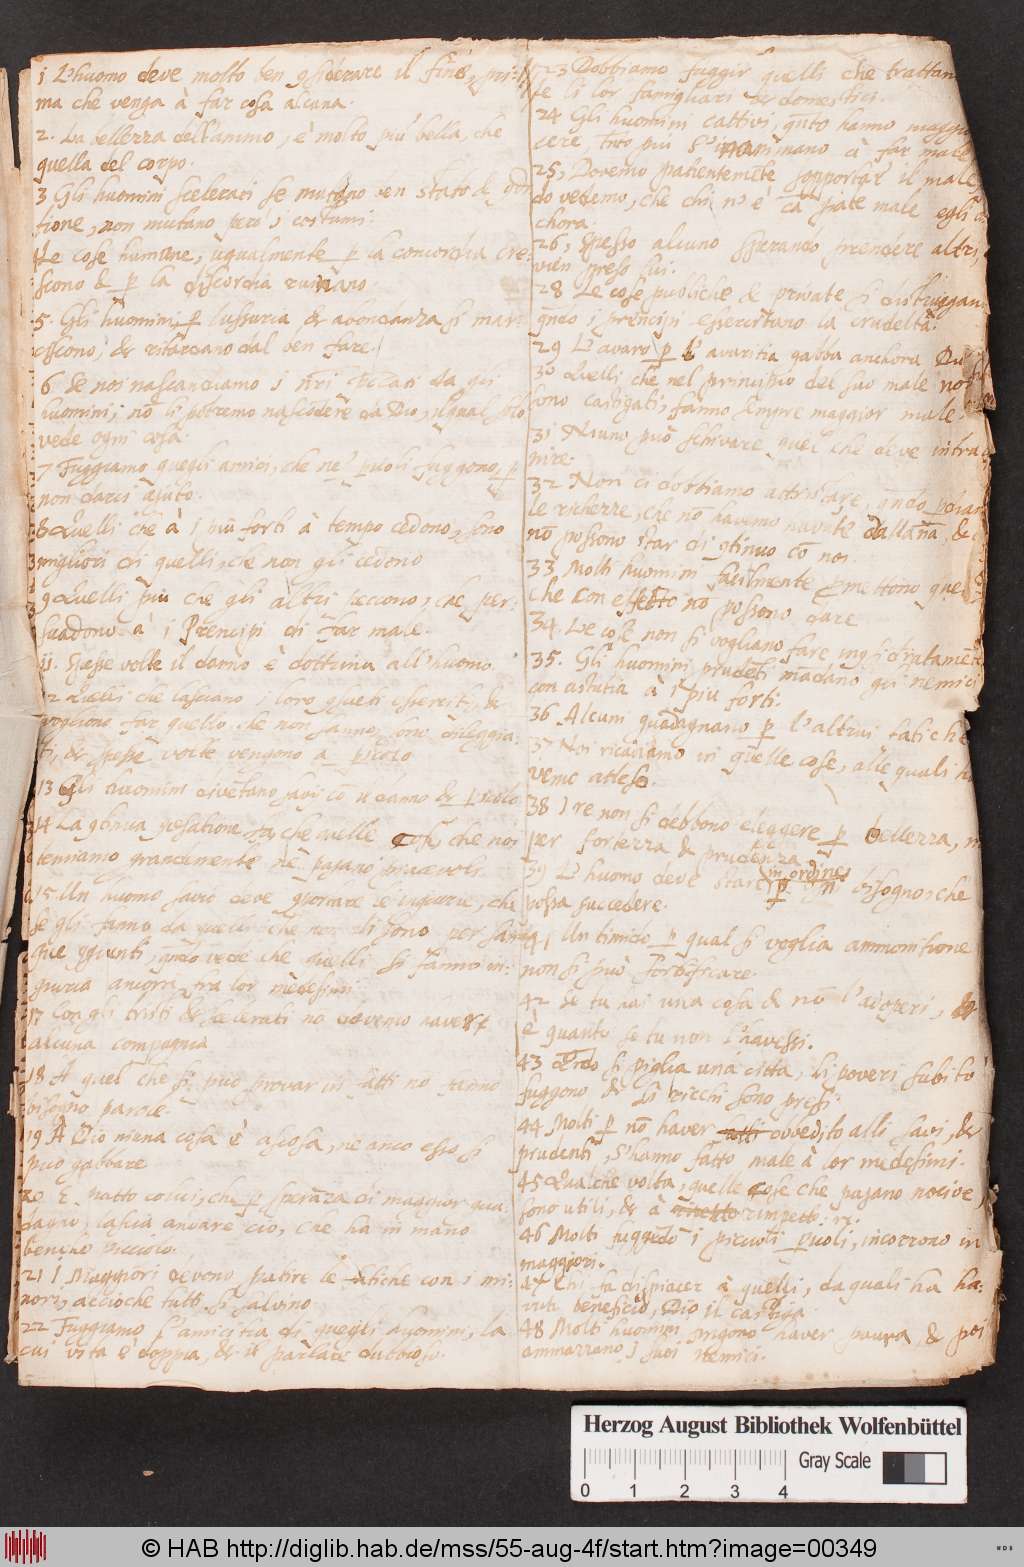 1 L'huomo deve molto ben gsiderare il fine, pri-
ma che venga à far cosa alcuna.
2. La bellezza dell'animo, è molto più bella, che
quella del corpo.
3 Gli huomini scelerati se mutano ben stato &
tione, non mutano però i costumi.
Le cose humane, ugualmente p la concordia cre-
scono & p la discordia ruinano.
5. Gli huomini p lussuria & abondanza si mar-
ciscono, & ritardano dal ben fare.
6 Se noi nascandiamo i nri peccati da gli
huomini, nō li potremo nascōdere da Dio, il qual solo
vede ogni cosa.
7 Fuggiamo quegli amici, che ne' picoli fuggono, p
non darci ajuto.
8 Quelli che à i più forti à tempo cedono, sono
migliori di quelli, che non gli cedono
9 Quelli più che gli altri peccono, che per-
suadono à i Prencipi di far male.
11. Spesse volte il danno è dottrina all'huomo.
12 Quelli che lasciano i loro gsueti esserciti, &
vogliono far quello che non sanno, sono dileggia-
ti, & spesse volte vengono a picolo
13 Gli huomini divētano savi cō il danno & picolo
14 La gtinua far che quelle cose, che noi
temiamo grandemente ne pajano piacevoli.
15 Un huomo savio deve gportare le ingiurie, che
se gli fanno da quelli che non li sono per
que ggiunti, qndo vede che quelli si fanno in-
giuria ancora tra lor medesimi.
17 Con gli tristi & scelerati no dovemo haver
alcuna compagnia
18 A quel che si può provar in fatti no fanno
bisogno parole.
19 A Dio niuna cosa è ascosa, ne anco esso si
può gabbare
20 È patto colui, che p speranza di maggior gua-
dagno, lascia andare ciò, che ha in mano
benche picciolo.
21 I Maggiori devono patire le fatiche con i mi-
nori, accioche tutti si salvino
22 Fuggiamo l'amicitia di quegli huomini, la
cui vita è doppia, & il parlare dubbioso.
23 Dobbiamo fuggir quelli che trattan
le li lor famigliari & domestici.
24 Gli huomini cattivi, qnto hanno maggior
cere tnto più s'inanimano à far male
25, Dovemo patientemēte sopportar il male
do vedemo, che chi n' è cā pate male egli
chora.
26, Spesso alcuno sperando prendere altri,
vien preso lui.
28 Le cose publiche & private si distruggan
qndo i principi essercitano la crudeltà.
29 L'avaro p l'avaritia gabba anchora
30 Quelli che nel principio del suo male nō
sono castigati, fanno sempre maggior male.
31 Niuno può schivare quel che deve intra
nire.
32 Non ci dobbiamo attristare, qndo
le richezze, che nō havemo havute &
nō possono star di gtinuo cō noi.
33 Molti huomini facilmente pmettono quel
che con effetto nō possono dare
34. Le cose non si vogliano fare
35. Gli huomini prudēti mādano gli nemici
con astutia à i più forti.
36 Alcuni guadagnano p l'altrui fatiche
37 Noi ricadiamo in quelle cose, alle quali
veme atteso.
38 I re non si debbono eleggere p bellezza, m
per fortezza & prudenza
39 L'huomo deve stare in ordine p ogni bisogno, che
possa succedere.
41 Un timido p qual si voglia ammonitione
non si può fortificare.
42 Se tu hai una cosa & nō l'adoperi,
è quanto se tu non l'havessi.
43 Qndo si piglia una città, li poveri subito
fuggono & li ricchi sono presi.
44 Molti p nō haver ovvedito alli savi, &
prudenti, s'hanno fatto male à lor medesimi.
45 Qualche volta, quelle cose che pajano nocive,
sono utili, & à rimpetto: r:
46 Molti fuggēdo i piccioli picoli, incorrono in
maggiori.
47 Chi fa dispiacer à quelli, da quali ha ha-
vuto beneficio, Dio il castiga
48 Molti huomini fingono haver paura, & poi
ammazzano i suoi nemici.
Herzog August Bibliothek Wolfenbüttel
Gray Scale
0 1 2 3 4
© HAB http://diglib.hab.de/mss/55-aug-4f/start.htm?image=00349